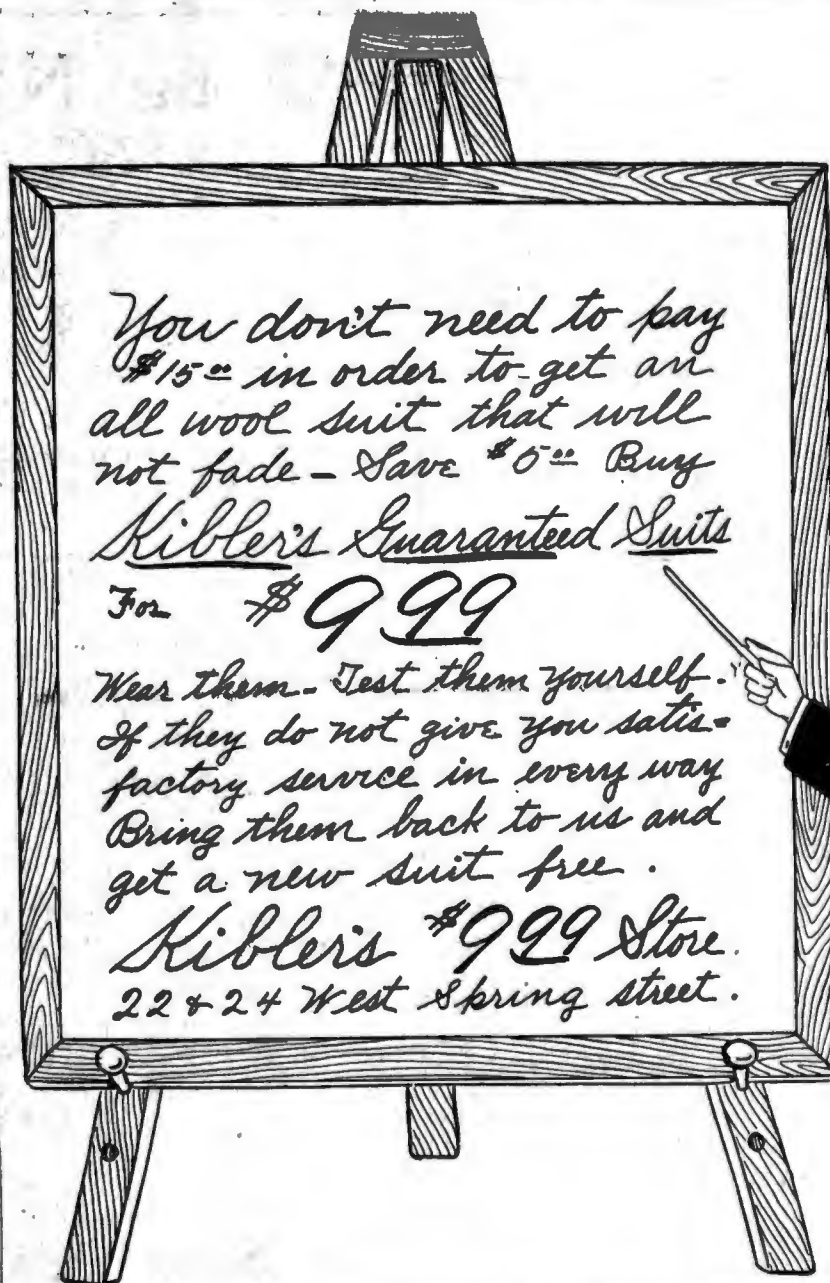 You don't need to pay
$15.00 in order to get an
all wool suit that will
not fade - Save $5.00 Buy
Kibler's Guaranteed Suits
For $9.99
Wear them - Test them yourself.
If they do not give you satis=
factory service in every way
Bring them back to us and
get a new suit free.
Kibler's $9.99 Store.
22 & 24 West Spring street.